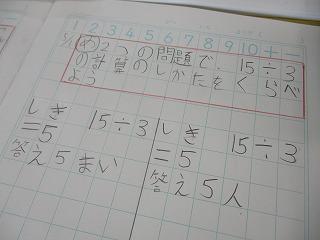 1 2 3 4 5 6 7 8 9 10 十 一
め 2つの問題で、15÷3
の計算のしかたをくらべ
よう
しき 15÷3
=5
答え5まい
しき 15÷3
=5
答え5人